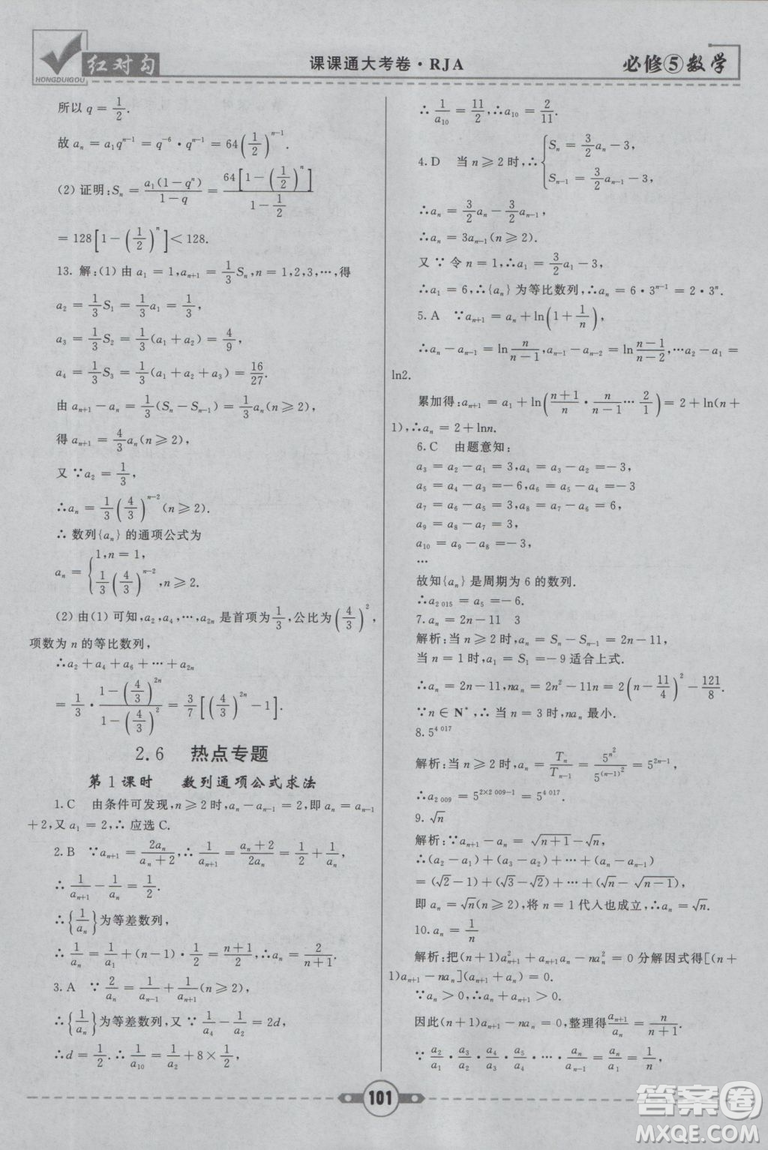 红对勾
HONGDUIGOU
课课通大考卷·RJA
必修⑤数学
所以 q = 1/2.
故 aₙ = a₁qⁿ⁻¹ = q⁻⁶·qⁿ⁻¹ = 64(1/2)ⁿ⁻¹.
(2) 证明: Sₙ = a₁(1-qⁿ)/(1-q) = 64[1-(1/2)ⁿ]/(1-1/2)
= 128[1-(1/2)ⁿ] < 128.
13. 解:(1) 由 a₁ = 1, aₙ₊₁ = 1/3 Sₙ, n = 1,2,3,…,得
a₂ = 1/3 S₁ = 1/3 a₁ = 1/3,
a₃ = 1/3 S₂ = 1/3(a₁ + a₂) = 4/9,
a₄ = 1/3 S₃ = 1/3(a₁ + a₂ + a₃) = 16/27.
由 aₙ₊₁ - aₙ = 1/3(Sₙ - Sₙ₋₁) = 1/3 aₙ(n ≥ 2),
得 aₙ₊₁ = 4/3 aₙ(n ≥ 2).
又 ∵ a₂ = 1/3,
∴ aₙ = 1/3(4/3)ⁿ⁻²(n ≥ 2).
∴ 数列{aₙ} 的通项公式为
aₙ = { 1, n = 1,
1/3(4/3)ⁿ⁻², n ≥ 2.
(2) 由(1) 可知, a₂, a₄, …, a₂ₙ 是首项为 1/3, 公比为(4/3)²,
项数为 n 的等比数列,
∴ a₂ + a₄ + a₆ + … + a₂ₙ
= 1/3 · [1-(4/3)²ⁿ]/[1-(4/3)²] = 3/7[(4/3)²ⁿ - 1].
2.6 热点专题
第1课时 数列通项公式求法
1. C 由条件可发现, n ≥ 2 时, aₙ - aₙ₋₁ = 2, 即 aₙ = aₙ₋₁
+ 2, 又 a₁ = 2, ∴ 应选 C.
2. B ∵ aₙ₊₁ = 2aₙ/(aₙ + 2), ∴ 1/aₙ₊₁ = (aₙ + 2)/2aₙ = 1/aₙ + 1/2,
∴ 1/aₙ₊₁ - 1/aₙ = 1/2.
∴ {1/aₙ} 为等差数列,
∴ 1/aₙ = 1/a₁ + (n-1)·1/2 = (n+1)/2, ∴ aₙ = 2/(n+1).
3. A ∵ 2/aₙ = 1/aₙ₋₁ + 1/aₙ₊₁(n ≥ 2),
∴ {1/aₙ} 为等差数列. 又 ∵ 1/a₄ - 1/a₂ = 2d,
∴ d = 1/2. ∴ 1/a₁₀ = 1/a₂ + 8 × 1/2,
∴ 1/a₁₀ = 11/2, ∴ a₁₀ = 2/11.
4. D 当 n ≥ 2 时, ∴ { Sₙ = 3/2 aₙ - 3,
Sₙ₋₁ = 3/2 aₙ₋₁ - 3,
∴ aₙ = 3/2 aₙ - 3/2 aₙ₋₁,
∴ aₙ = 3aₙ₋₁(n ≥ 2).
又 ∵ 令 n = 1, ∴ a₁ = 3/2 a₁ - 3,
∴ a₁ = 6, ∴ {aₙ} 为等比数列, ∴ aₙ = 6·3ⁿ⁻¹ = 2·3ⁿ.
5. A ∵ aₙ₊₁ = aₙ + ln(1 + 1/n),
∴ aₙ - aₙ₋₁ = ln n/(n-1), aₙ₋₁ - aₙ₋₂ = ln (n-1)/(n-2), …, a₂ - a₁ =
ln2.
累加得: aₙ₊₁ = a₁ + ln((n+1)/n · n/(n-1)… 2/1) = 2 + ln(n+
1), ∴ aₙ = 2 + lnn.
6. C 由题意知:
a₃ = a₂ - a₁ = 3,
a₄ = a₃ - a₂ = -3,
a₅ = a₄ - a₃ = -6,
a₆ = a₅ - a₄ = -3,
a₇ = a₆ - a₅ = 3,
a₈ = a₇ - a₆ = 6,
a₉ = a₈ - a₇ = 3,
a₁₀ = a₉ - a₈ = -3,
…
故知{aₙ} 是周期为 6 的数列.
∴ a₂ ₀₁₅ = a₅ = -6.
7. aₙ = 2n - 11 3
解析: 当 n ≥ 2 时, aₙ = Sₙ - Sₙ₋₁ = 2n - 11,
当 n = 1 时, a₁ = S₁ = -9 适合上式.
∴ aₙ = 2n - 11, naₙ = 2n² - 11n = 2(n - 11/4)² - 121/8.
∵ n ∈ N*, ∴ n = 3 时, naₙ 最小.
8. 5⁴ ⁰¹⁷
解析: 当 n ≥ 2 时, aₙ = Tₙ/Tₙ₋₁ = 5^(n²)/5^((n-1)²) = 5²ⁿ⁻¹,
∴ a₂ ₀₀₉ = 5^(2×2 009-1) = 5⁴ ⁰¹⁷.
9. √n
解析: ∵ aₙ₊₁ - aₙ = √(n+1) - √n,
∴ (a₂ - a₁) + (a₃ - a₂) + … + (aₙ - aₙ₋₁)
= (√2 - 1) + (√3 - √2) + … + (√n - √(n-1)),
即 aₙ = √n(n ≥ 2), 将 n = 1 代人也成立, ∴ aₙ = √n.
10. aₙ = 1/n
解析: 把(n+1)a²ₙ₊₁ + aₙ₊₁aₙ - na²ₙ = 0 分解因式得[(n+
1)aₙ₊₁ - naₙ](aₙ₊₁ + aₙ) = 0.
∵ aₙ > 0, ∴ aₙ₊₁ + aₙ > 0.
因此(n+1)aₙ₊₁ - naₙ = 0, 整理得 aₙ₊₁/aₙ = n/(n+1).
∵ a₂/a₁ · a₃/a₂ · a₄/a₃ · … · aₙ/aₙ₋₁ = 1/2 × 2/3 × 3/4 × … ×
101
答案圈
MXQE.COM